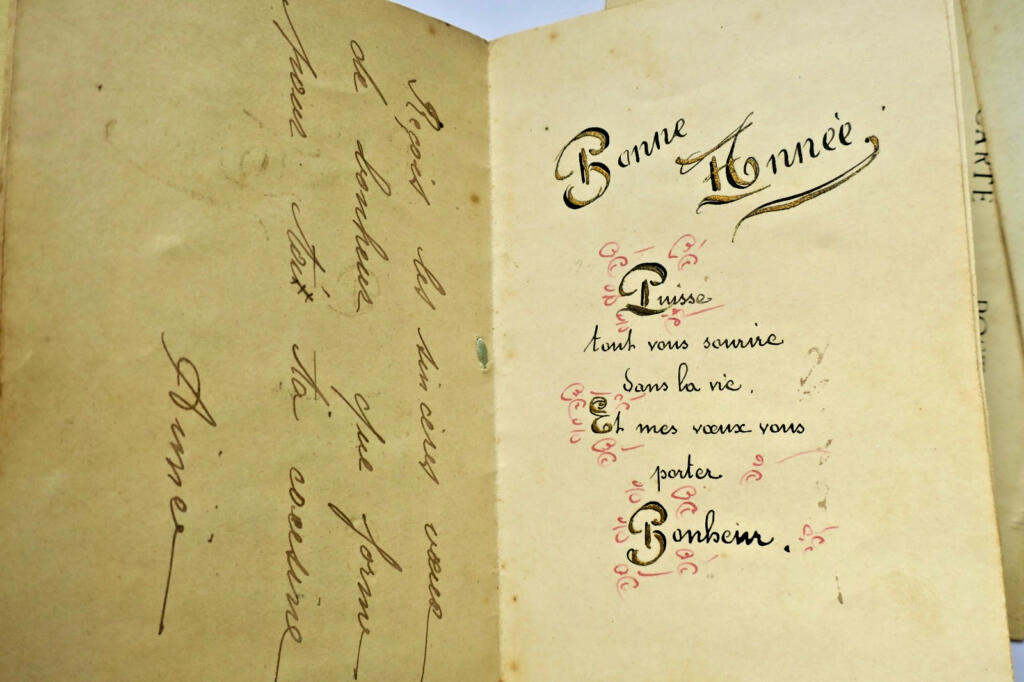 Reçois les sincères vœux
de bonheur que forme
pour toi ta cousine
Aimée
Bonne Année
Puisse
tout vous sourire
dans la vie.
Et mes vœux vous
porter
Bonheur.
CARTE